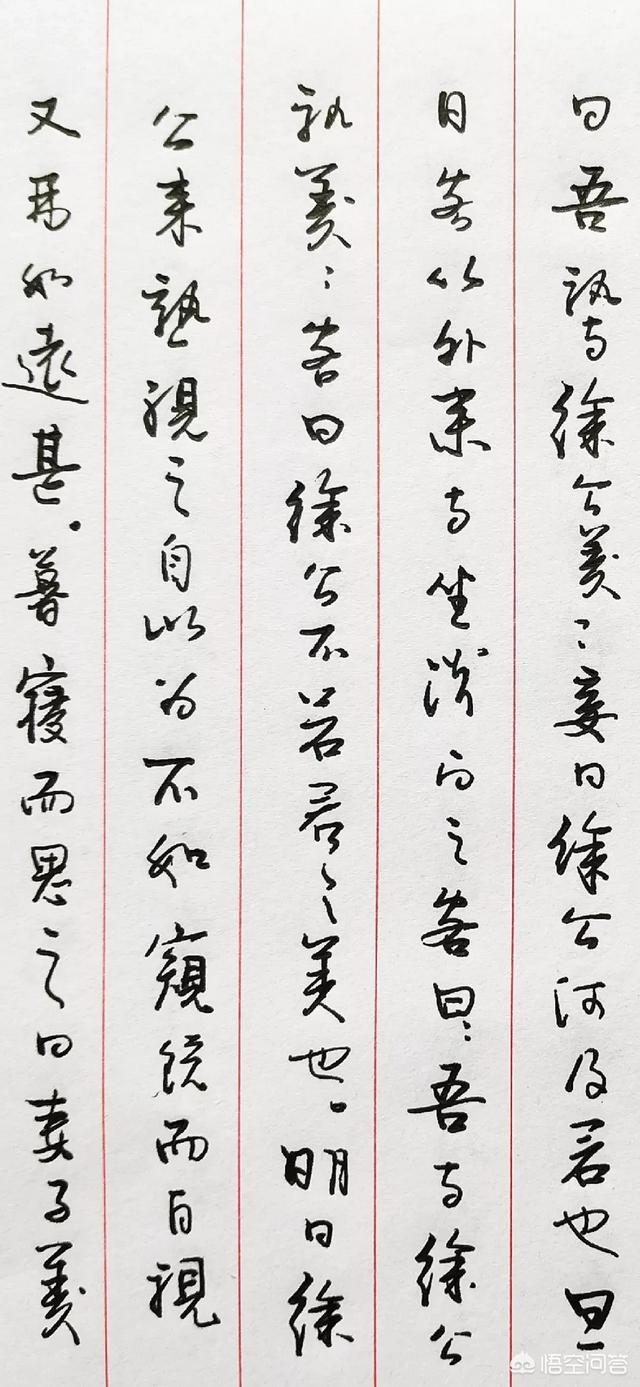 曰吾孰与徐公美：妾曰徐公何及君也旦
日客从外来与坐谈问之客曰：吾与徐公
孰美：客曰徐公不若君之美也。明日徐
公来熟視之自以为不如窥镜而自視
又弗如遠甚。暮寝而思之曰妻子美
悟空问答